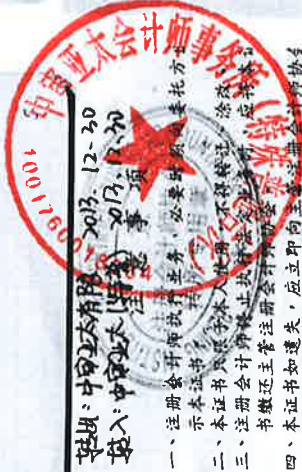 中审亚太会计师事务所（特殊普
转出：中审亚太有限 2013.12-30
转入：中审亚太（特普） 2013.12.30
注意事项
一、注册会计师执行业务，必要时须向委托方出
示本证书。
二、本证书只限于本人使用，不得转让、涂改
三、注册会计师停止执行法定业务时，应将本证
书缴还主管注册会计师协会。
四、本证书如遗失，应立即向主管注册会计师协会